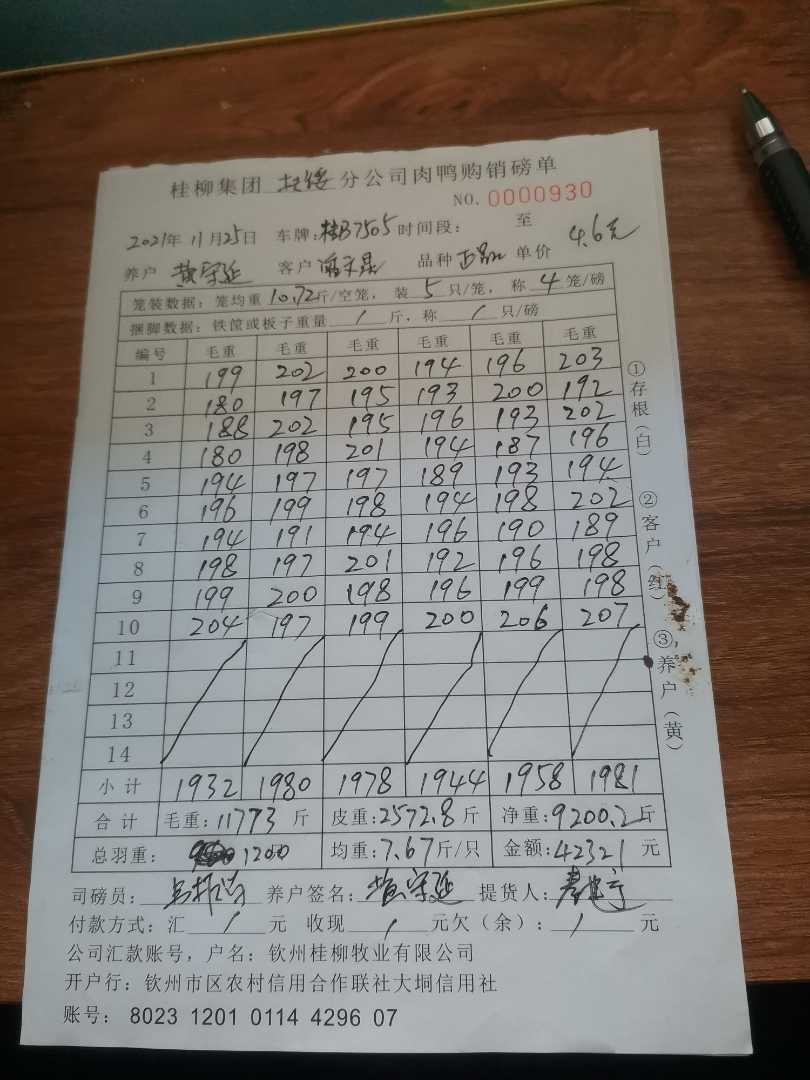 桂柳集团 扶绥 分公司肉鸭购销磅单
NO. 0000930
2021年 11月25日 车牌:桂B7505 时间段: 至
养户 黄守延 客户 品种 正品 单价 4.6元
笼装数据: 笼均重 10.72斤/空笼, 装 5 只/笼, 称 4 笼/磅
捆脚数据: 铁筐或板子重量 / 斤, 称 / 只/磅
编号 毛重 毛重 毛重 毛重 毛重 毛重
1 199 202 200 194 196 203
2 180 197 195 193 200 192
3 188 202 195 196 193 202
4 180 198 201 194 187 196
5 194 197 197 189 193 194
6 196 199 198 194 198 202
7 194 191 194 196 190 189
8 198 197 201 192 196 198
9 199 200 198 196 199 198
10 204 197 199 200 206 207
11
12
13
14
小计 1932 1980 1978 1944 1958 1981
合计 毛重:11773 斤 皮重:2572.8 斤 净重:9200.2斤
总羽重: 1200 均重:7.67斤/只 金额:42321 元
司磅员: 养户签名: 黄守延 提货人:
付款方式: 汇 / 元 收现 / 元欠(余): / 元
公司汇款账号, 户名: 钦州桂柳牧业有限公司
开户行: 钦州市区农村信用合作联社大垌信用社
账号: 8023 1201 0114 4296 07
①存根(白)
②客户(红)
③养户(黄)